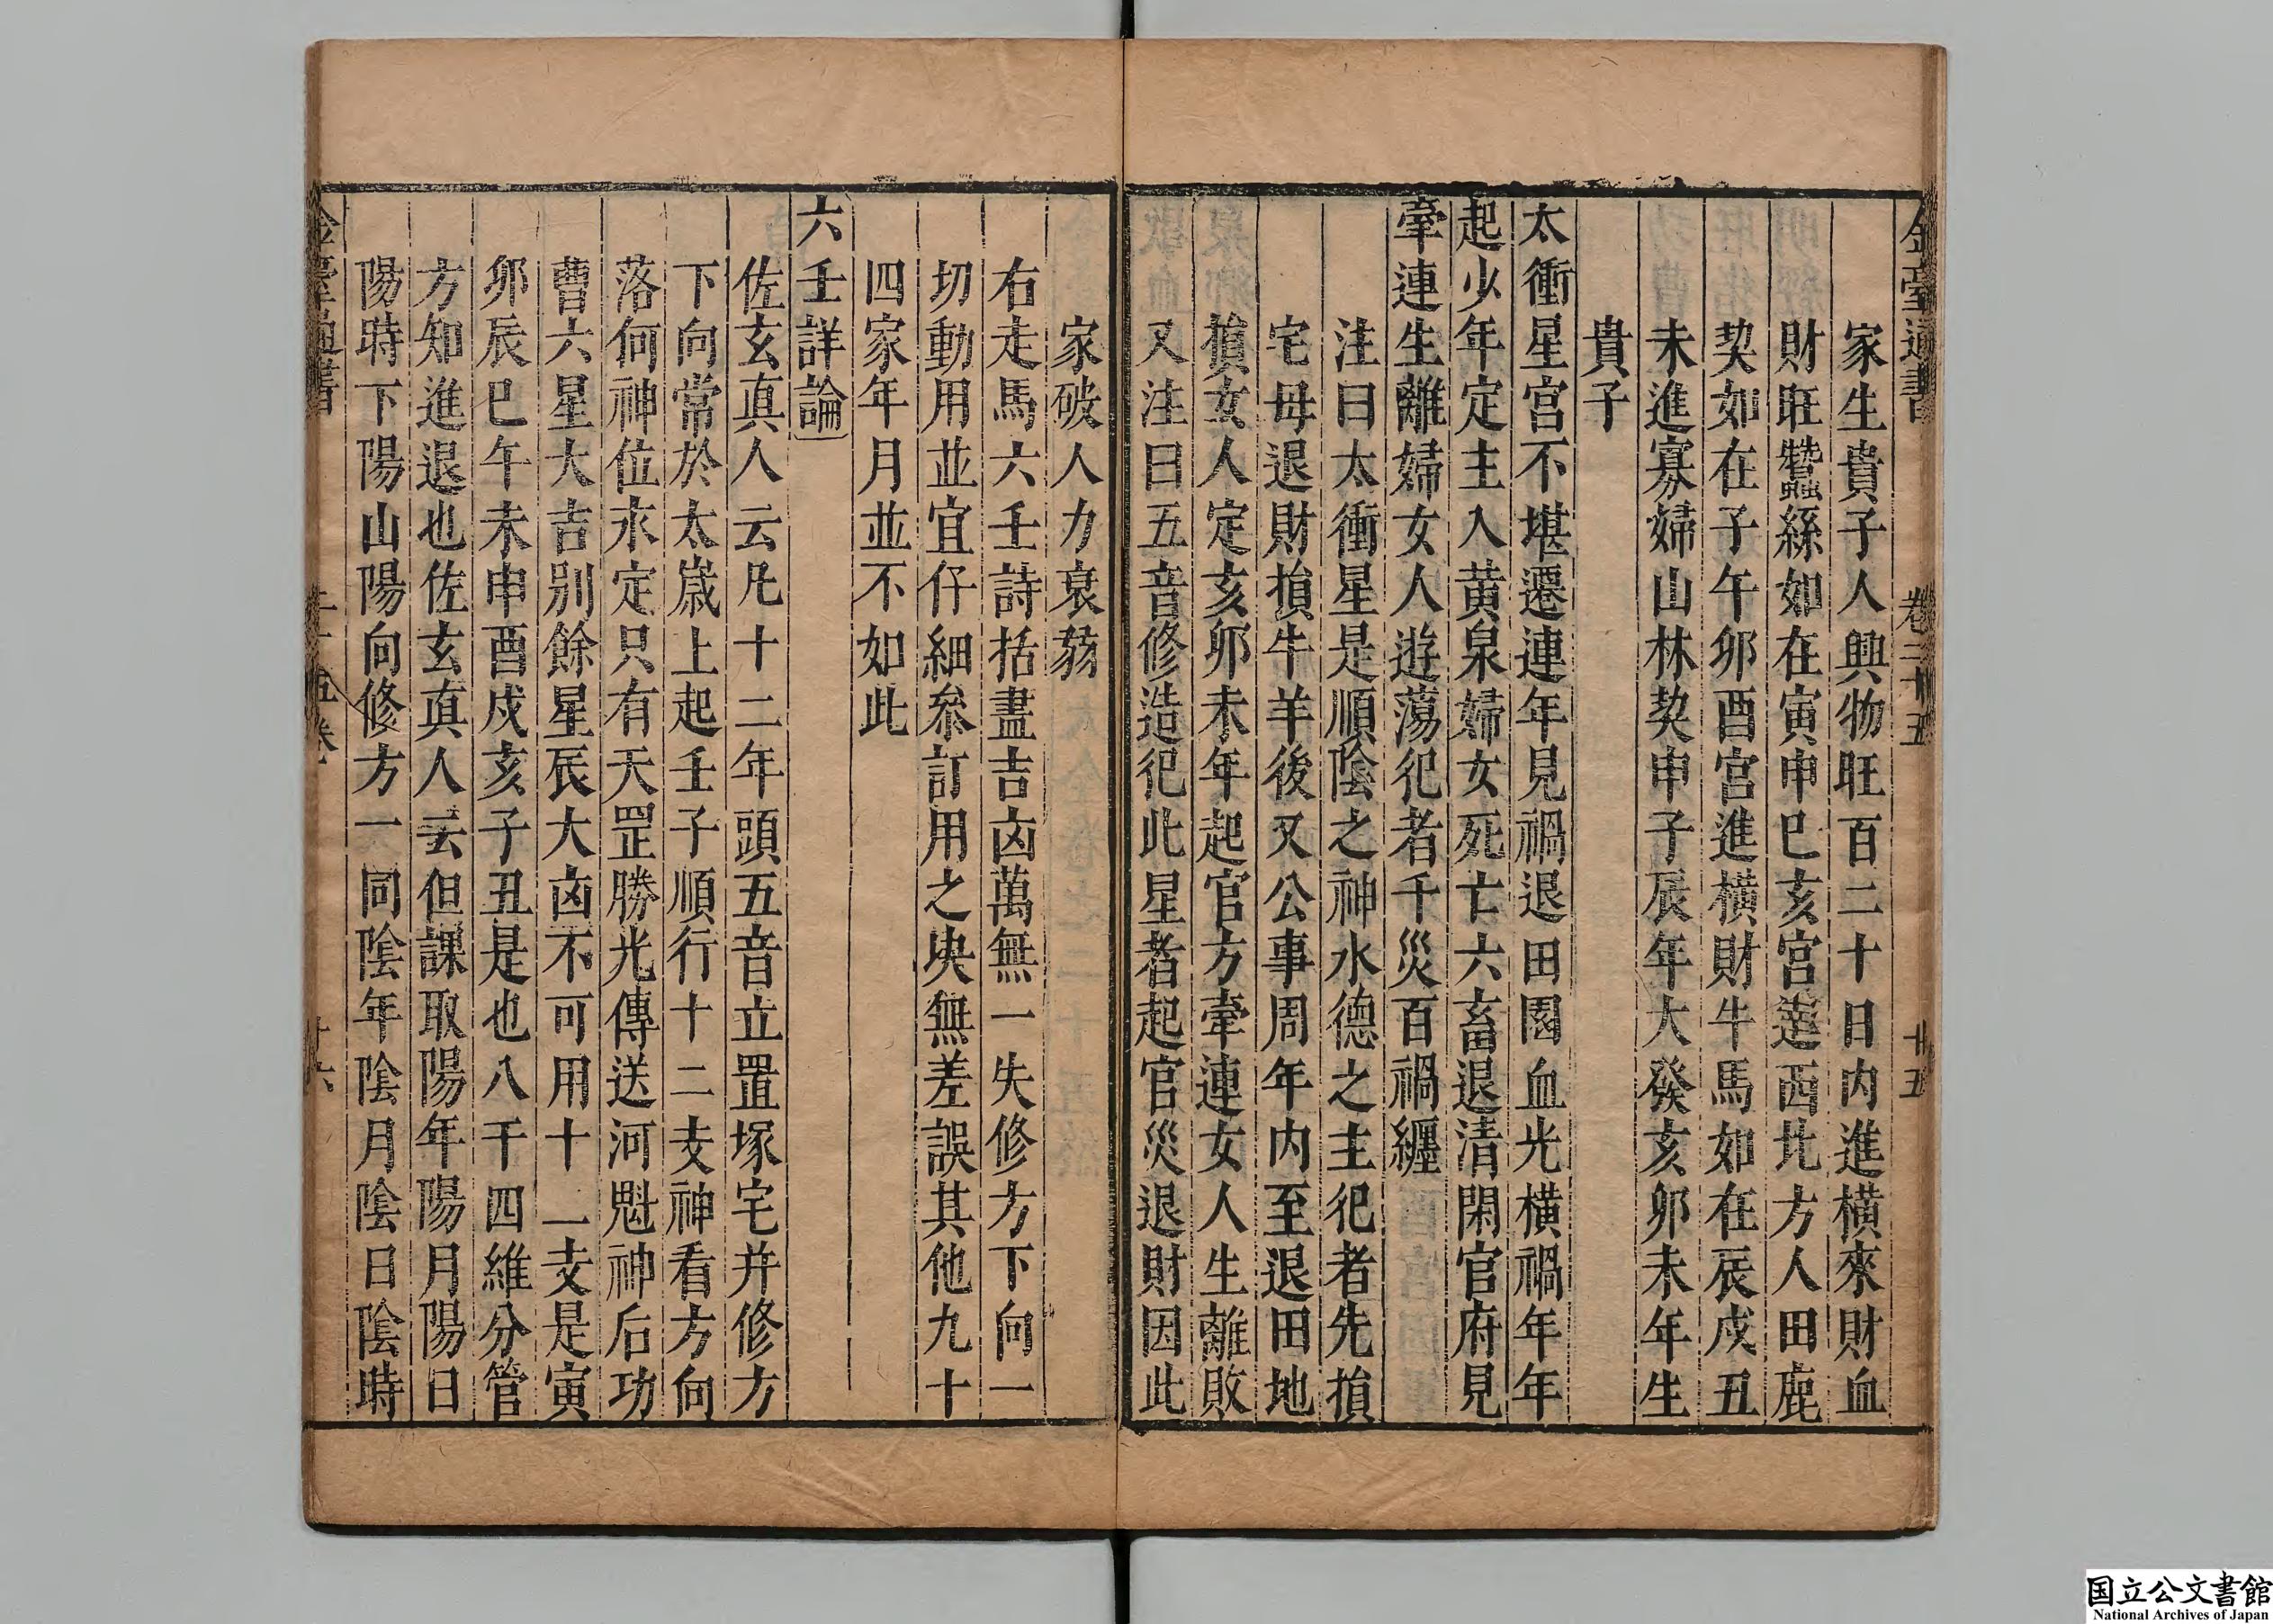 金臺通書 卷二十五 十五
家生貴子人興物旺百二十日内進橫來財血
財旺蠶絲如在寅申巳亥宮進西北方人田鹿
契如在子午卯酉宮進橫財牛馬如在辰戌丑
未進寡婦山林契申子辰年大發亥卯未年生
貴子
太衝星宮不堪遷連年見禍退田園血光橫禍年年
起少年定主入黃泉婦女死亡六畜退清閑官府見
牽連生離婦女人遊蕩犯者千災百禍纏
注曰太衝星是順陰之神水德之主犯者先損
宅母退財損牛羊後又公事周年内至退田地
損女人定亥卯未年起官方牽連女人生離敗
又注曰五音修造犯此星者起官災退財因此
家破人力衰蒻
右走馬六壬詩括盡吉凶萬無一失修方下向一
切動用並宜仔細叅訂用之垬無差誤其他九十
四家年月並不如此
六壬詳論
佐玄真人云凡十二年頭五音立置塚宅并修方
下向常於太歲上起壬子順行十二支神看方向
落何神位求定只有天罡勝光傳送河魁神后功
曹六星大吉別餘星辰大凶不可用十二支是寅
卯辰巳午未申酉戌亥子丑是也八干四維分管
方知進退也佐玄真人云但課取陽年陽月陽日
陽時下陽山陽向修方一同陰年陰月陰日陰時
金臺通書 二十五卷 十六
国立公文書館
National Archives of Japan